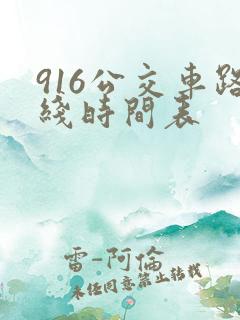 916公交車路
綫時間表
雷-阿倫
未經同意禁止轉載